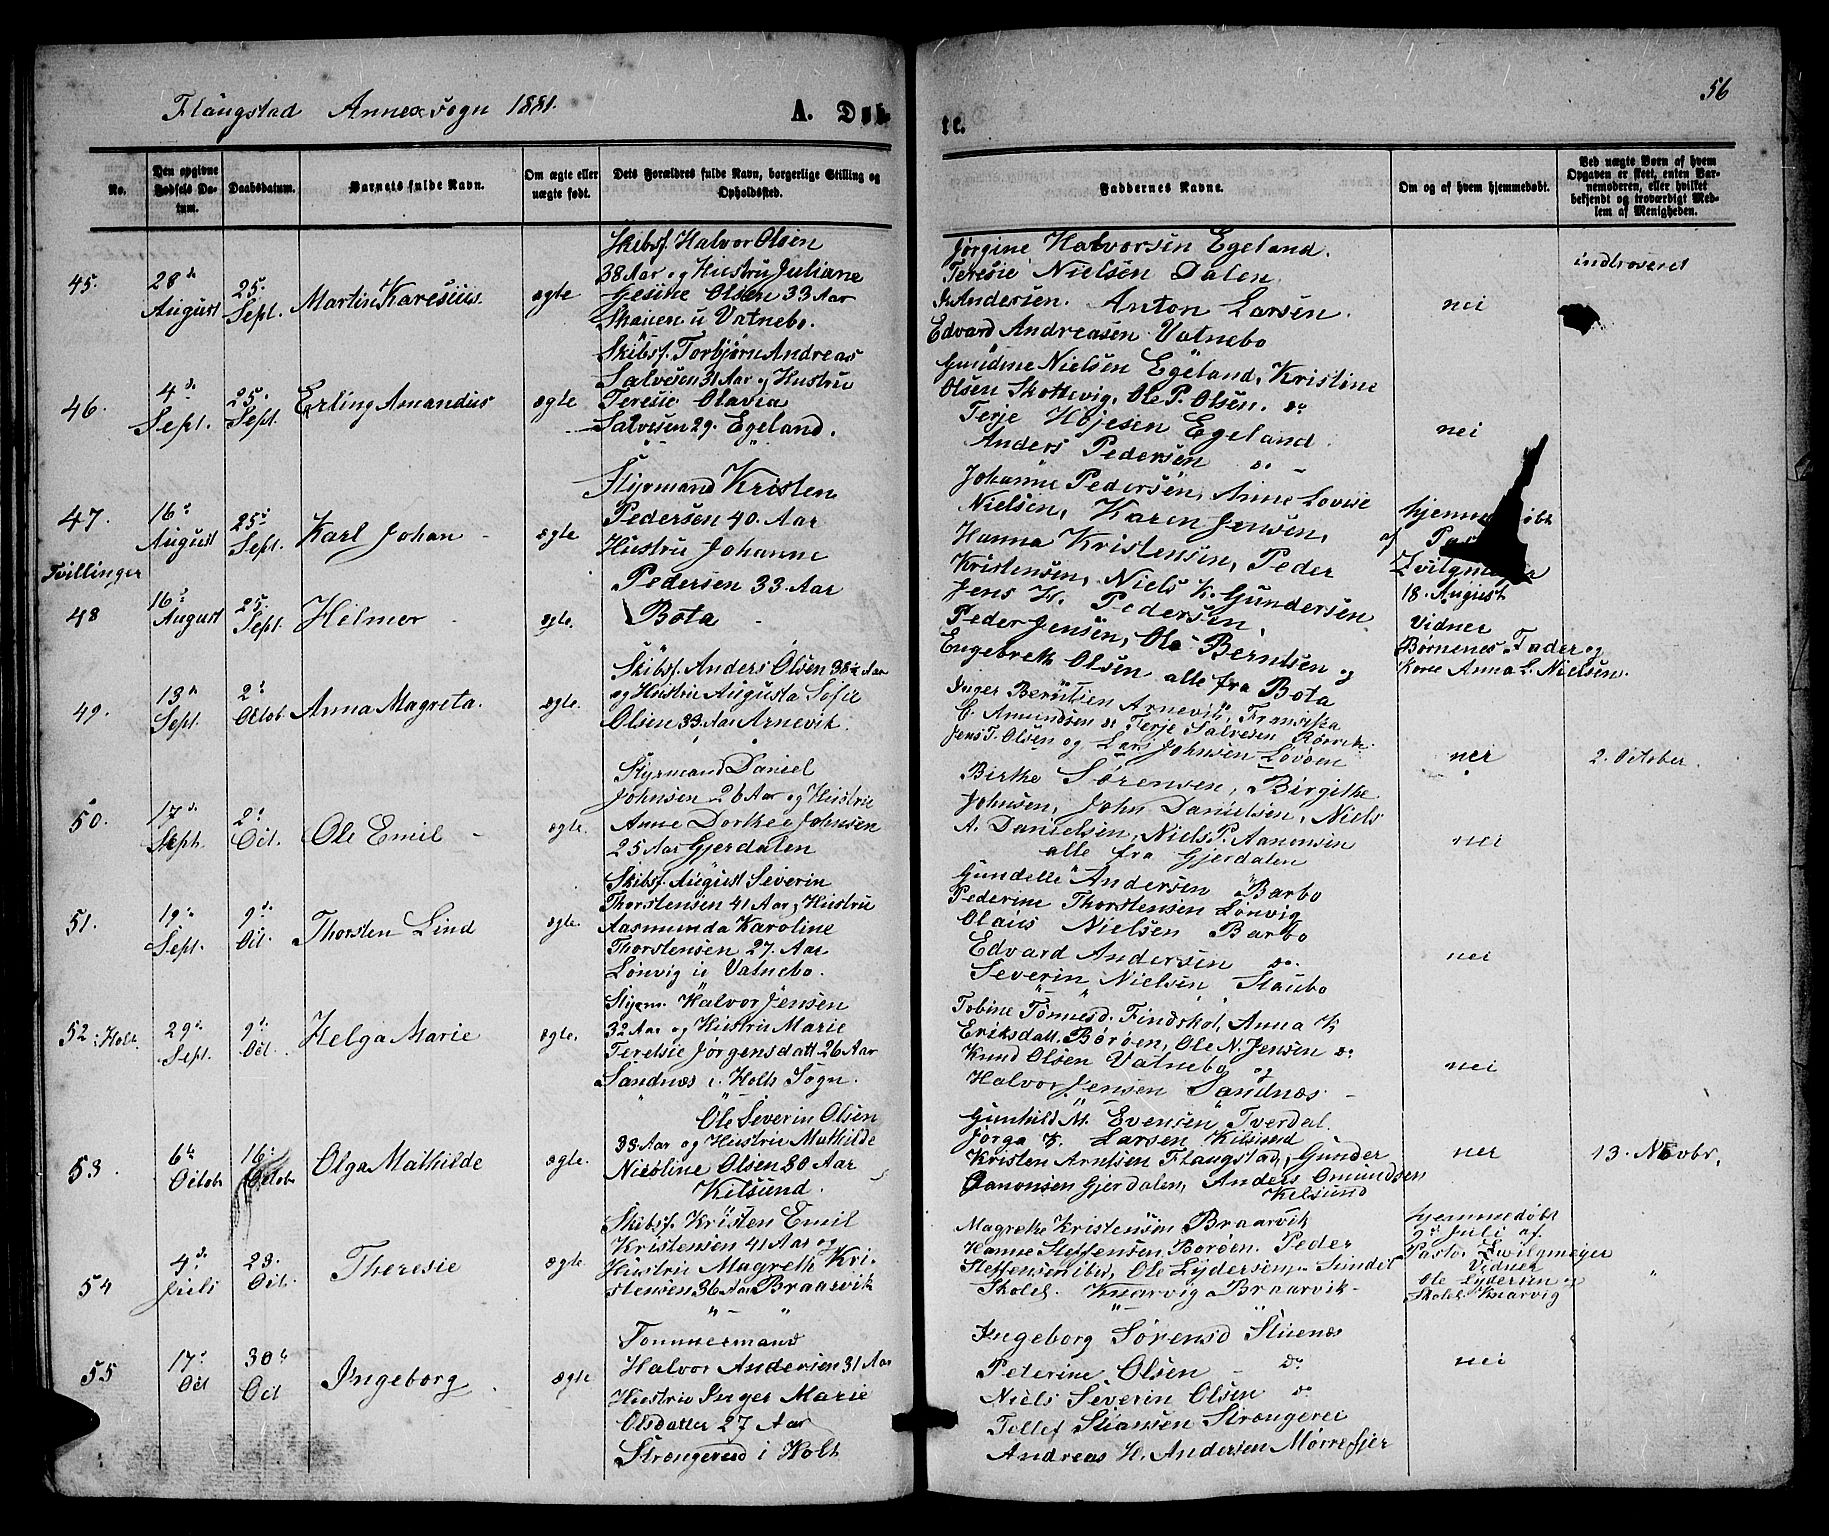 Flangstad Annexsogn 1881.
A. Døbte.
56
No.
Den opgivne Fødsels Datum.
Daabsdatum.
Barnets fulde Navn.
Om ægte eller uægte født.
Dets Forældres fulde Navn, borgerlige Stilling og Opholdssted.
Faddernes Navne.
Om og af hvem hjemmedøbt.
Ved uægte Børn af hvem Opgaven er skeet, enten Barnemoderen, eller hvilket bekjendt og troværdigt Medlem af Menigheden.
45.
28de August
25. Sept.
Martin Karesius
ægte
Skibsf. Halvor Olsen
38 Aar og Hustru Juliane
Gesine Olsen 33 Aar
Skaien u Vatnebo.
Jørgine Halvorsen Egeland.
Teresie Nielsen Dalen
Andersen. Anton Larsen.
Edvard Andreasen Vatnebo
nei
introveret
46.
4de Sept.
25. Sept.
Erling Amandus
ægte
Skibsf. Torbjørn Andreas
Salvesen 31 Aar og Hustru
Teresie Olavia
Salvesen 29. Egeland.
Gundine Nielsen Egeland, Kristine
Olsen Skottevig, Ole P. Olsen. do
Terje Højesen Egeland
Anders Pedersen do -
nei
47.
16: August
25: Sept.
Karl Johan -
ægte
Styrmand Kristen
Pedersen 40. Aar
Hustru Johanne
Pedersen 33 Aar
Bota -
Tvillinger
48
16: August
25. Sept.
Helmer -
ægte.
Johanne Pedersen, Anne Lovise
Nielsen, Karen Jensen,
Hanna Kristensen, Peder
Kristensen, Niels K. Gundersen
Jens H. Pedersen,
Peder Jensen, Ole Berntsen og
Engebrekt Olsen alle fra Bota
hjemmedøbt
af
18. August
Vidner
Børnenes Fader og
Kone Anna L. Nielsen.
49.
13de Sept.
2: Octob.
Anna Magreta.
ægte.
Skibsf. Anders Olsen 38½ Aar
og Hustru Augusta Sofie
Olsen 33 Aar Arnevik.
Inger Berntsen Arnevik, Fransiska
E. Amundsen do Terje Salvesen Rørvik
Jens T. Olsen og Lars Johnsen Løvøen
nei
2. October.
50.
17de Septb.
2: Oct.
Ole Emil -
ægte.
Styrmand Daniel
Johnsen 26 Aar og Hustru
Anne Dorthea Johnsen
25 Aar Gjerdalen
Birthe Sørensen, Birgithe
Johnsen, John Danielsen, Niels
A. Danielsen, Niels P. Aanonsen
alle fra Gjerdalen
nei
51.
19de Sept.
9de Oct.
Thorsten Lind
ægte.
Skibsf. August Severin
Thorstensen 41 Aar og Hustru
Aasmunda Karoline
Thorstensen 27. Aar
Lønvig u Vatnebo.
Gundelle Andersen Barbo
Pederine Thorstensen Lønvig
Olaus Nielsen Barbo
Edvard Andersen do.
Severin Nielsen Staubo
nei
52: Holt.
29de Sept.
9de Oct.
Helga Marie
ægte.
Styrm. Halvor Jensen
32 Aar og Hustru Marie
Terelsie Jørgensdatt 26 Aar
Sandnæs i Holts Sogn.
Tobine Tønnesd. Findshol, Anna K
Eriksdatt. Børøen, Ole N. Jensen do
Knud Olsen Vatnebo og
Halvor Jensen Sandnæs -
nei
53.
6te Octob
16: Octob
Olga Mathilde
ægte.
Ole Severin Olsen
38 Aar og Hustru Mathilde
Nicoline Olsen 30 Aar
Kilsund.
Gunhild M. Evensen Tverdal.
Jørga K. Larsen Kilsund
Kristen Arntsen Flangstad, Gunder
Aanonsen Gjerdalen, Anders Omundsen
Kilsund
nei
13. Novbr.
54
4de Juli
23. Oct.
Theresie
ægte.
Skibsf. Kristen Emil
Kristensen 41 Aar og
Hustru Magreth Kri-
stensen 36 Aar Braarvik
Magrethe Kristensen Braarvik
Hanne Steffensen Borøen. Peder
Steffensen ibid, Ole Lydersen, Sundet
Skolel. Knarvig Braarvik -
hjemmedøbt
9de Juli af
Pastor Zwilgmeyer
Vidner
Ole Lydersen og
Skolel. Knarvig
"
55
17: Oct
30te Oct
Ingeborg.
ægte
Tømmermand
Halvor Andersen 31 Aar
Hustru Inger Marie
Olsdatter 27 Aar
Strengereid i Holt
Ingeborg Sørensd Stuenæs
Peterine Olsen - do
Niels Severin Olsen do
Tellef Stiansen Strengerei
Andreas H. Andersen Mørrefjer
nei